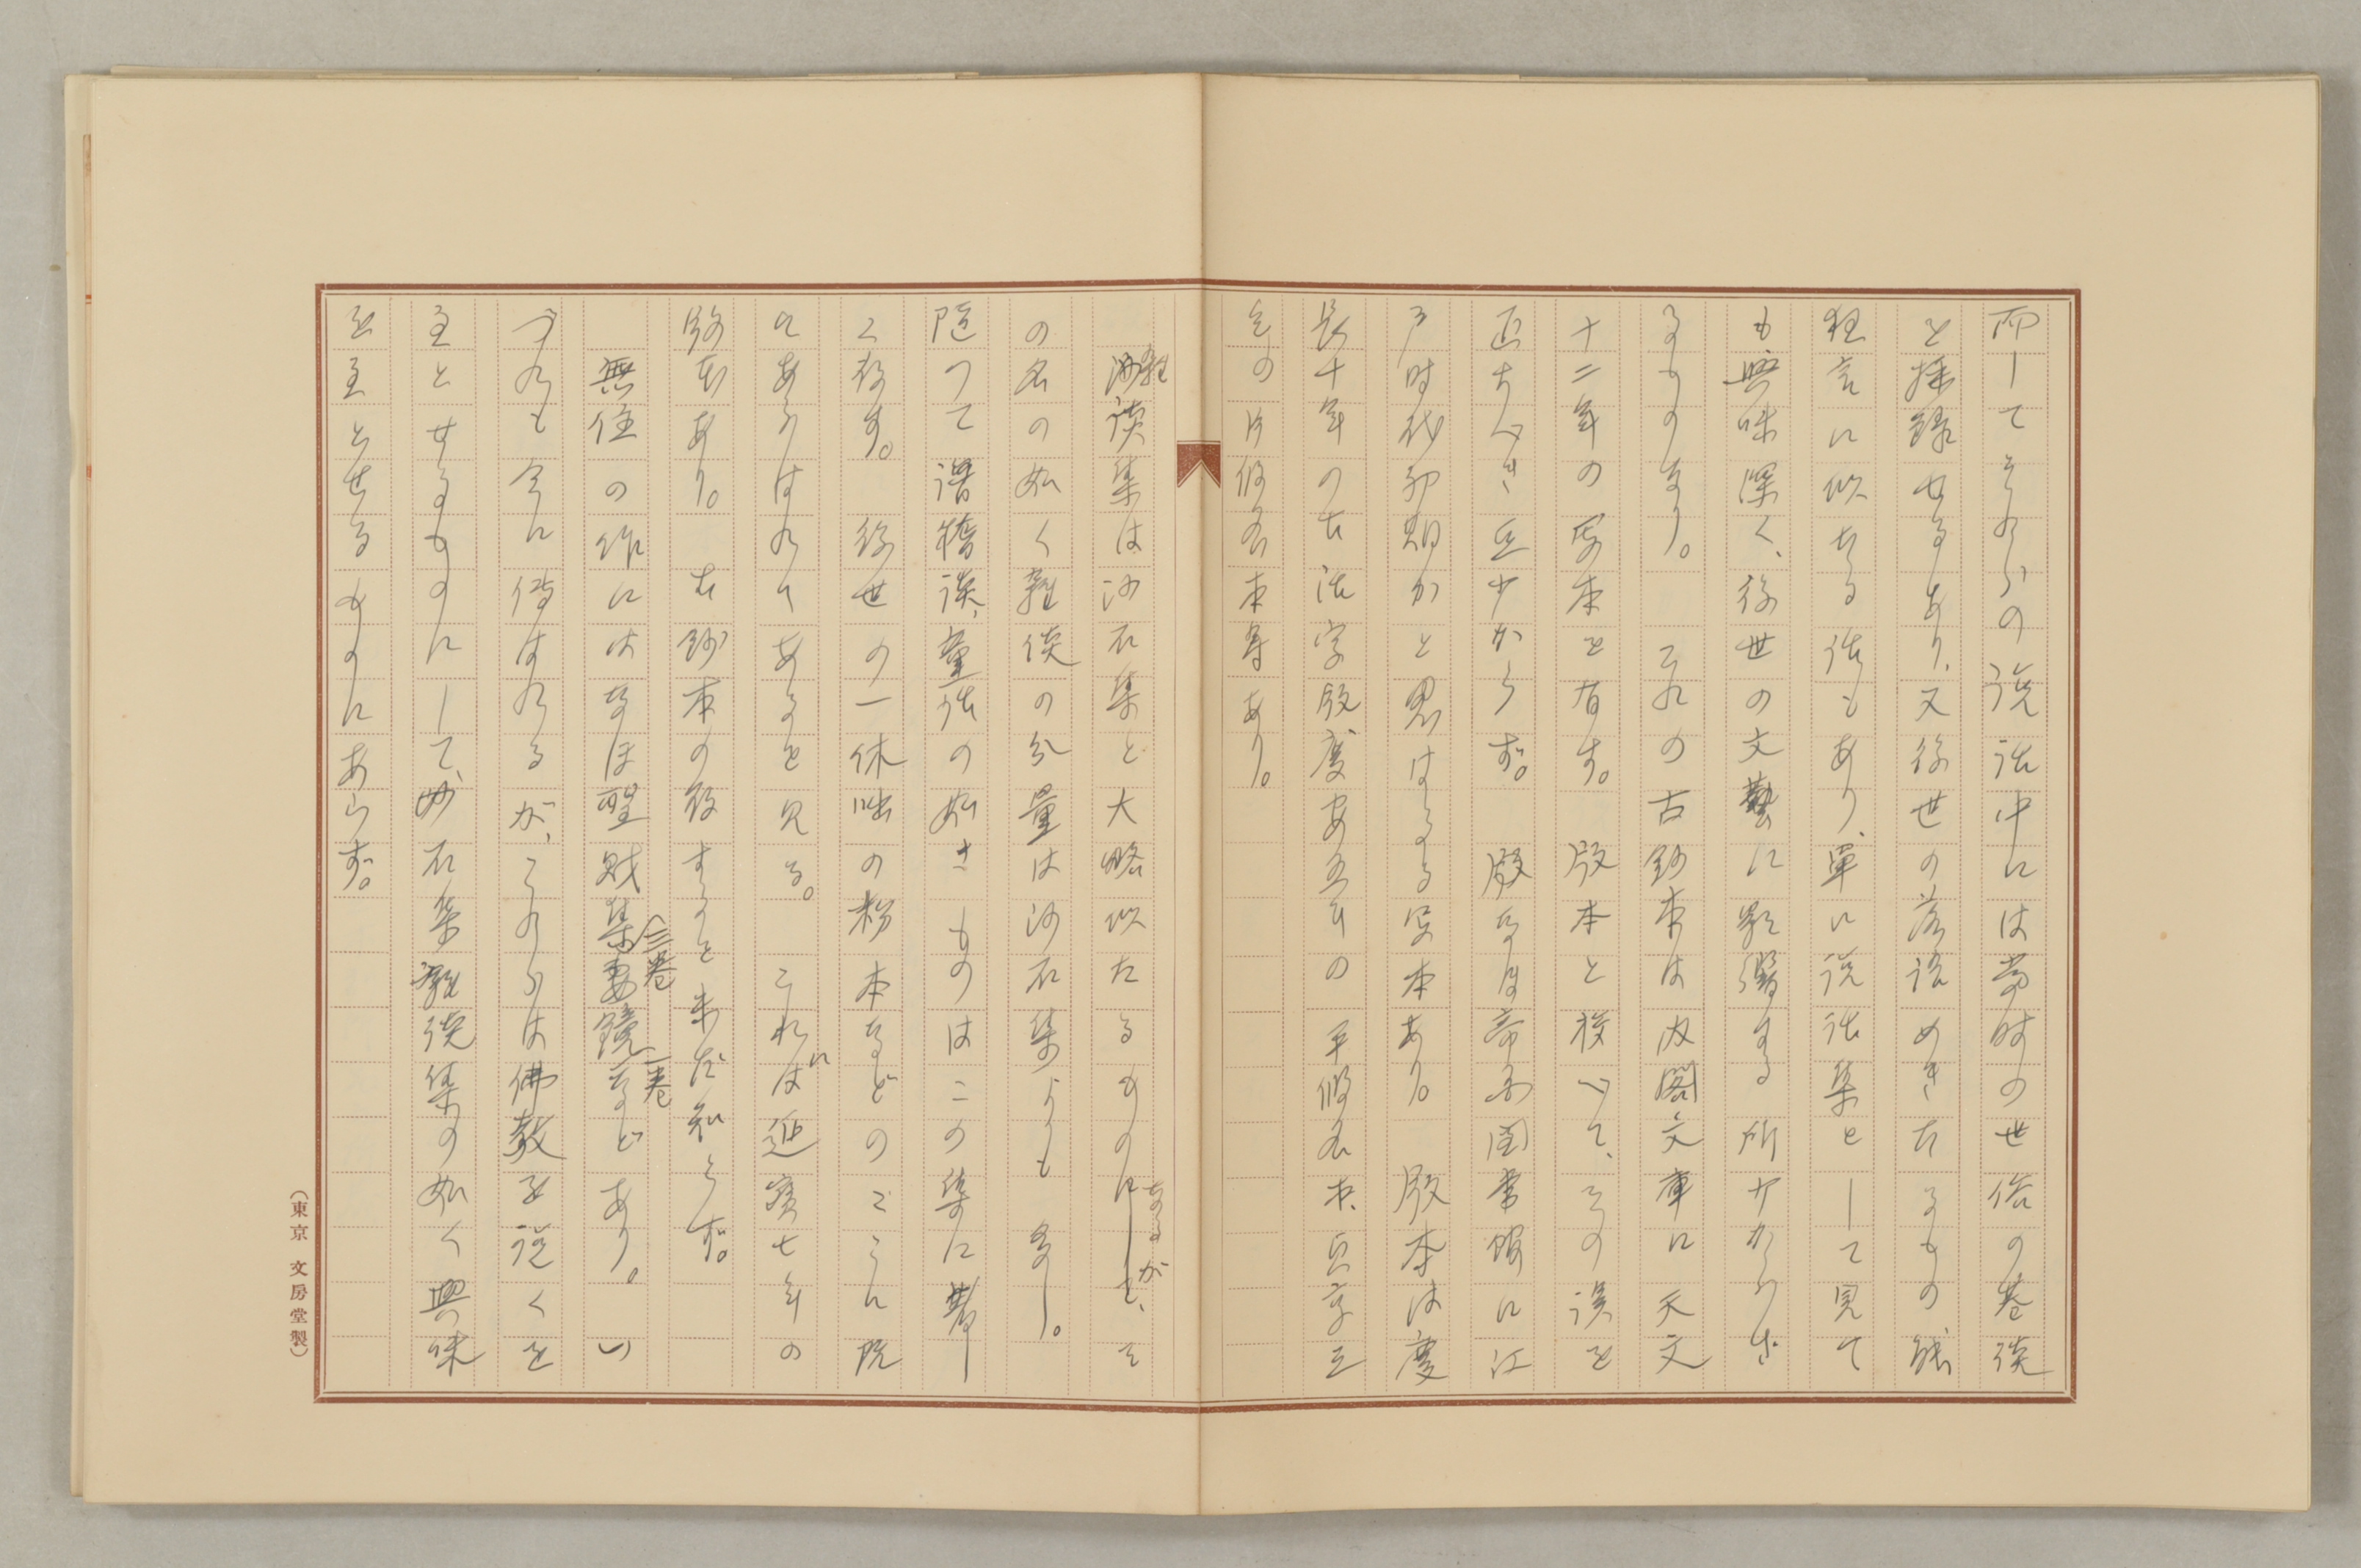 而してそれらの説話中には当時の世俗の巷談
を採録せるあり、又後世の落語めきたるもの、
狂言に似たる話もあり、単に説話集として見て
も興味深く、後世の文藝に影響する所少からざ
るものなり。これの古鈔本は内閣文庫に天文
十二年の写本を有す。版本と校べて、その誤を
正すべき点少からず。猶なほ帝国図書館に江
戸時代初期かと思はるる写本あり。版本は慶
長十年の古活字版慶安五年の平假名本、貞享三
年の片假名本等あり。
雑談集は沙石集と大略似たるものなるが、そ
の名の如く雑談の分量は沙石集よりも多し。
随つて滑稽談、童話の如きものはこの集に豊し
く存す。後世の一休咄の粉本などのここに既
にあらはれてあるを見る。これには延宝七年の
版本あり。古鈔本の存することを未だ知らず。
無住の作にはなほ聖財集(三巻)妻鏡(一巻)などあり。い
づれも今に傳はれるが、これらは佛教を説くを
主とせるものにして、沙石集雑談集の如く興味
を主とせるものにあらず。
(東京 文房堂製)